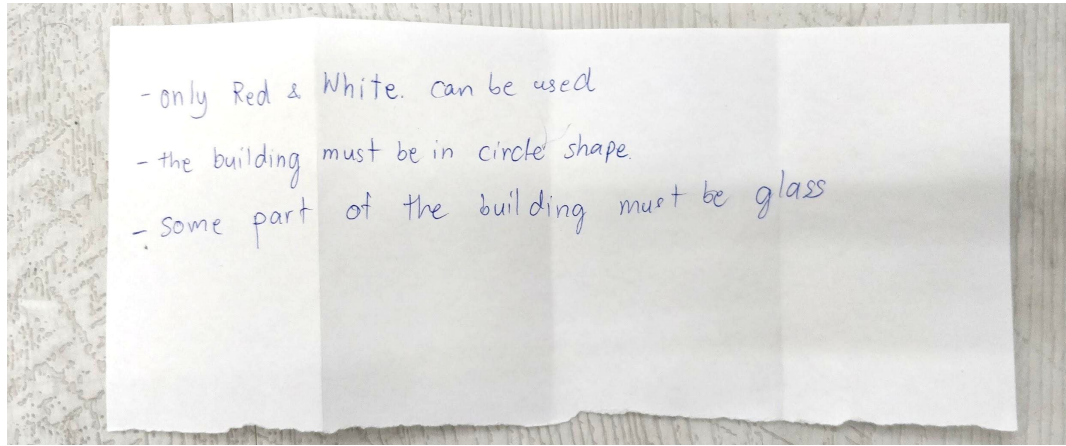 - only Red & White. can be used
- the building must be in circle shape.
- some part of the building must be glass